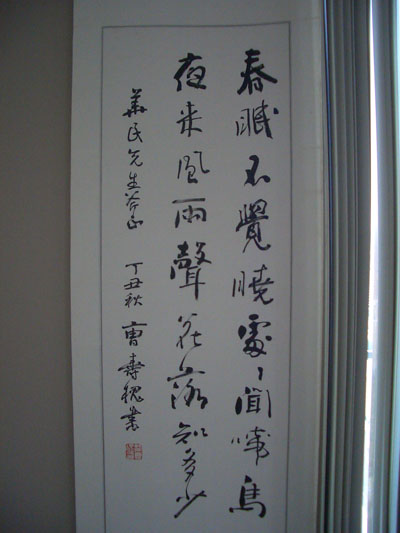 春眠不覺曉處〻聞啼鳥
夜来風雨聲花落知多少
華民先生斧正 丁丑秋 曹壽槐業